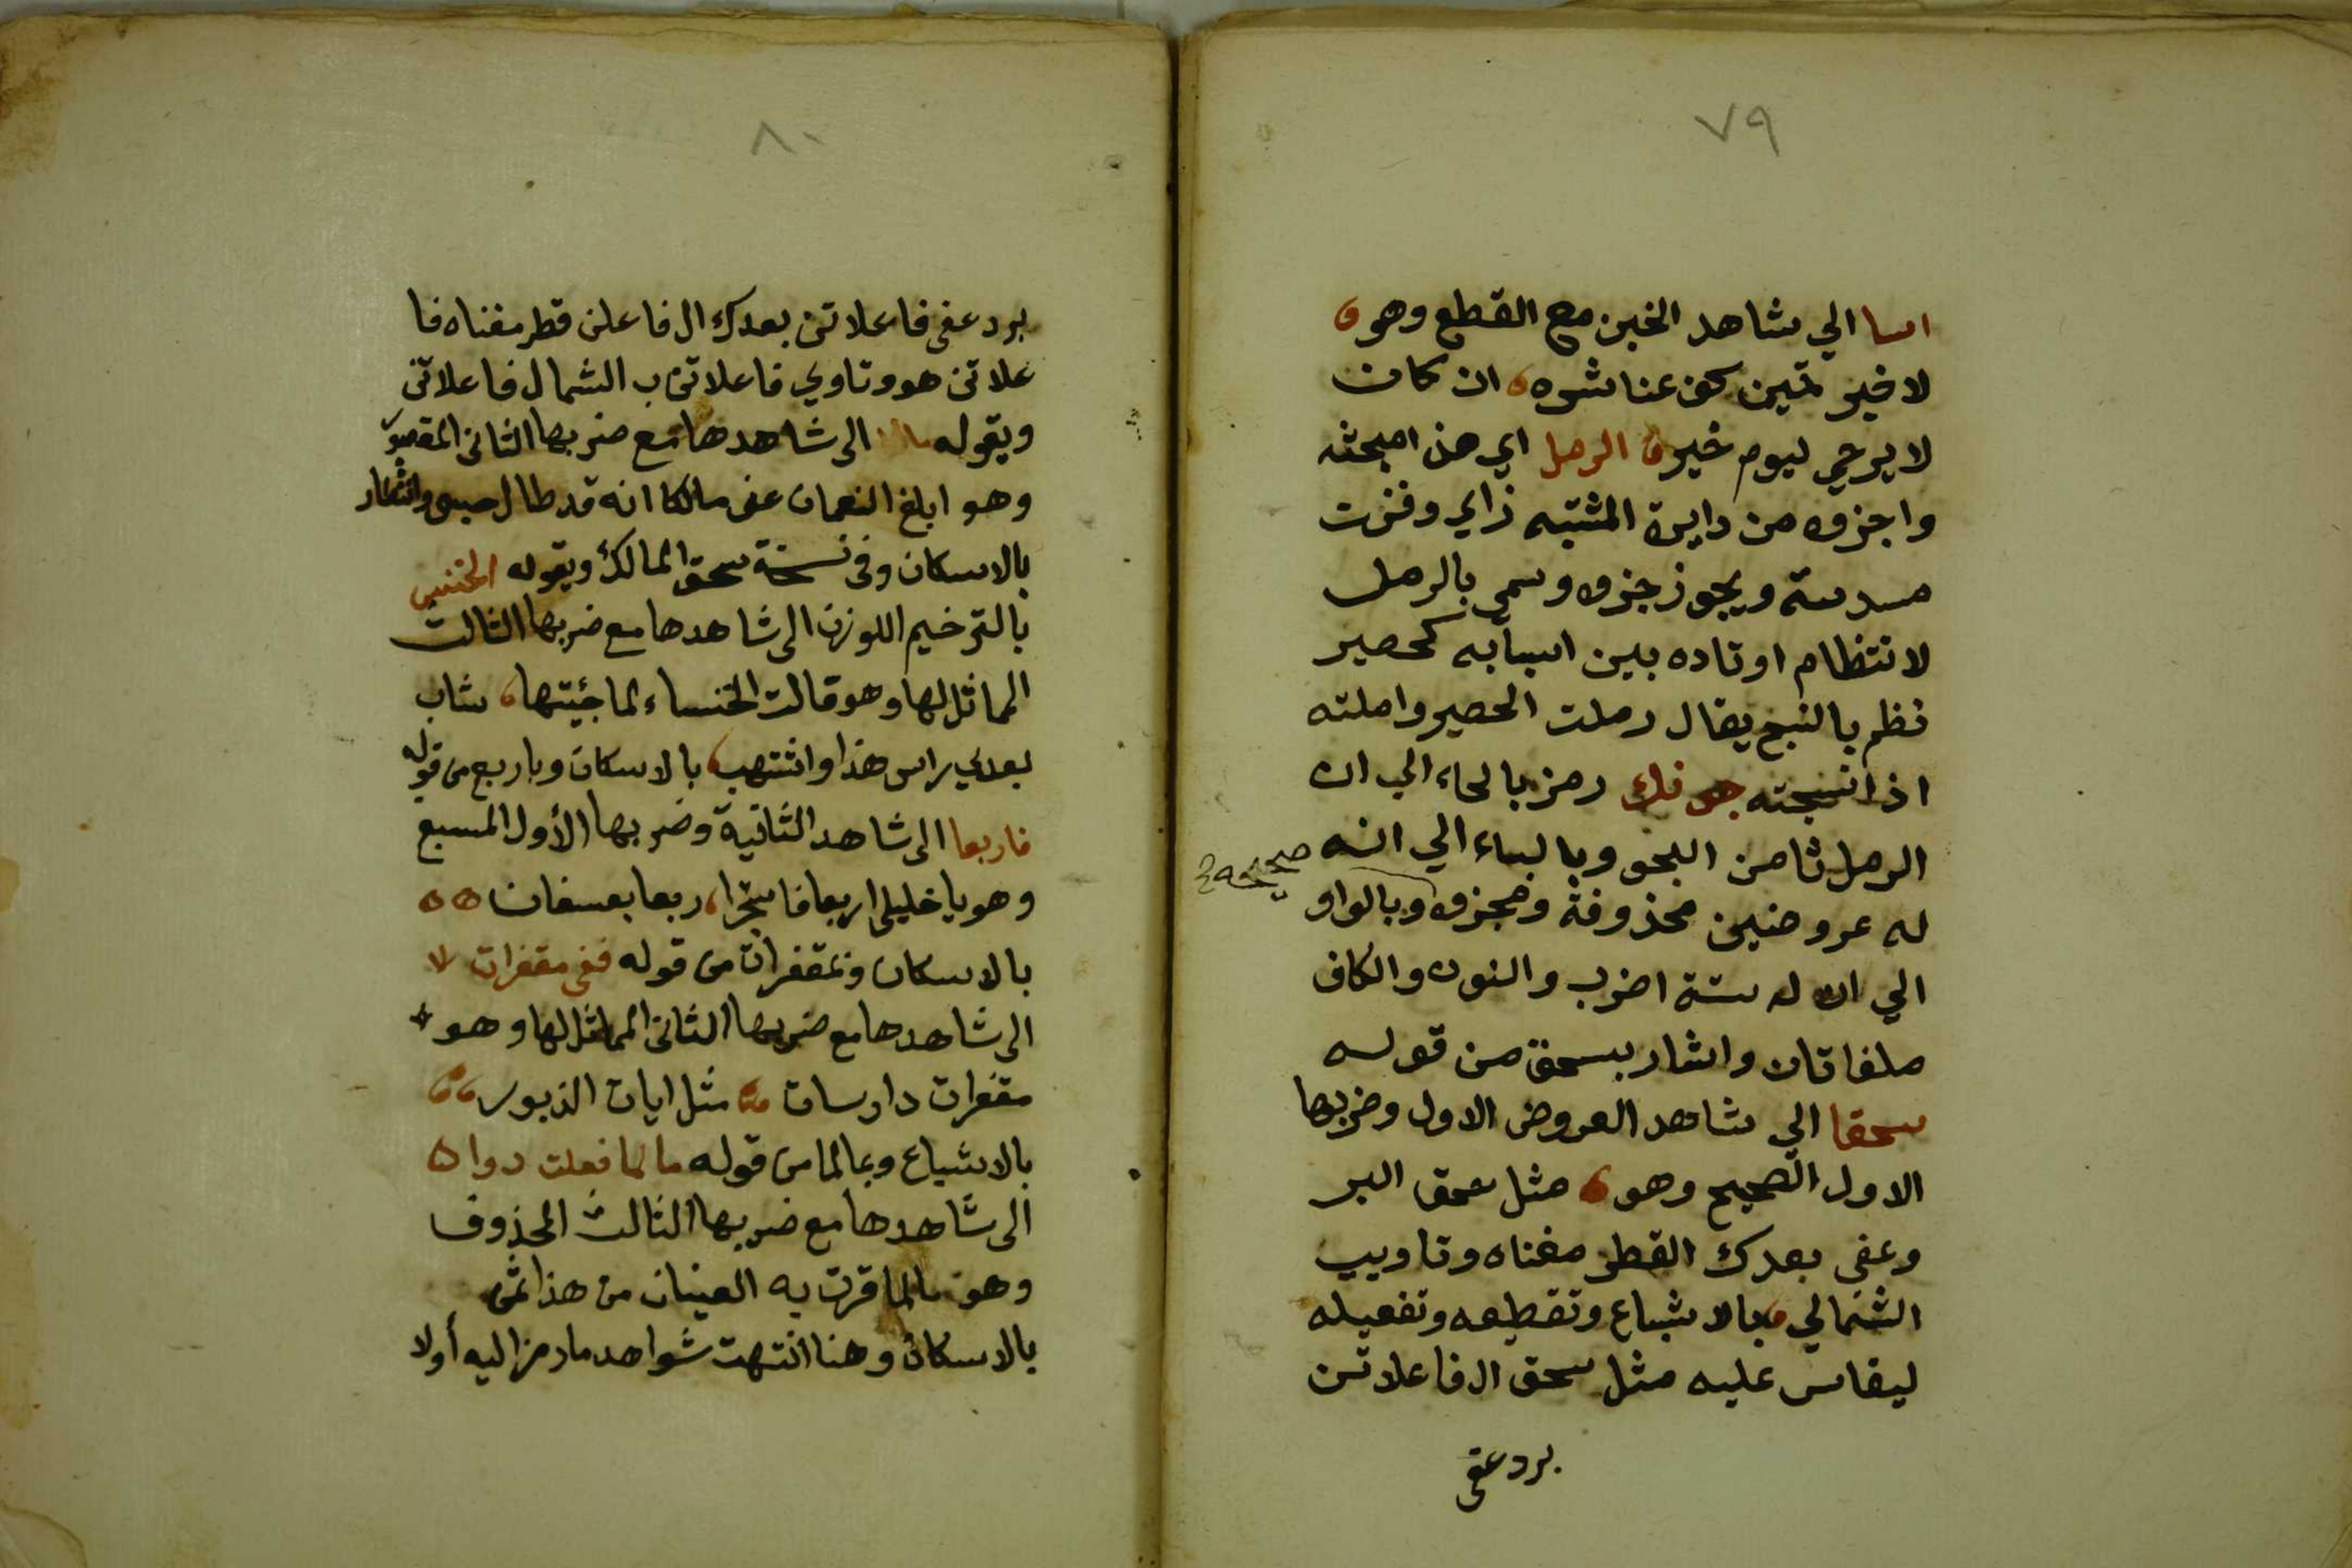 ٧٩
اسا الي شاهد الخبن مع القطع وهو
لا خير فيمن كف عنا شره ان كان
لا يرجي ليوم خير الرمل اي هذا مبحثه
واجزوه من دايرة المشتبه زاي وفزت
مسدسة ويجوز جزوه وسمي بالرمل
لانتظام اوتاده بين اسبابه كحصير
نظم بالنسج يقال رملت الحصير وارملته
اذا نسجته حبونك رمز بالحاء الي ان
الرمل ثامن البحو وبالباء الي انه
له عروضين محذوفة ومجزوه وبالواو
صحيحة
الي ان له ستة اضرب والنون والكاف
ملغاتان واشار بسحق من قوله
سحقا الي شاهد العروض الاول وضربها
الاول الصحيح وهو مثل سحق البر
وعفى بعدك القطر مغناه وتاويب
الشمالي بالاشباع وتقطيعه وتفعيله
ليقاس عليه مثل سحق ال فاعلاتن
برد عفى
٨٠
برد عفى فاعلاتن بعدك ال فاعلن قطر مغناه فا
علاتن هو وتاوي فاعلاتن ب الشمال فاعلاتن
ويقوله الى شاهدها مع ضربها الثانى المقصور
وهو ابلغ النعمان عنى مالكا انه قد طال حبسى وانتظار
بالاسكان وفى نسخة سحق المالك ويقوله الخنس
بالترخيم اللوزن الى شاهدها مع ضربها الثالث
المماثل لها وهو قالت الخنساء لما جئيتها شاب
بعدي راس هذا واشتهب بالاسكان وباربع من قوله
فاربعا الى شاهد الثانية وضربها الأول المسبع
وهو يا خليلى اربعا فاستخبرا ربعا بعسفان
بالاسكان وبمقفرات من قوله ففى مقفرات لا
الى شاهدها مع ضربها الثانى المماثل لها وهو
مقفرات دارسات مثل ايات الزبور
بالاشباع وبمالما من قوله ما لما فعلت دوا
الى شاهدها مع ضربها الثالث المحذوف
وهو مالما قرت به العينان من هذا ثمن
بالاسكان وهنا انتهت شواهد ما رمز اليه أولا